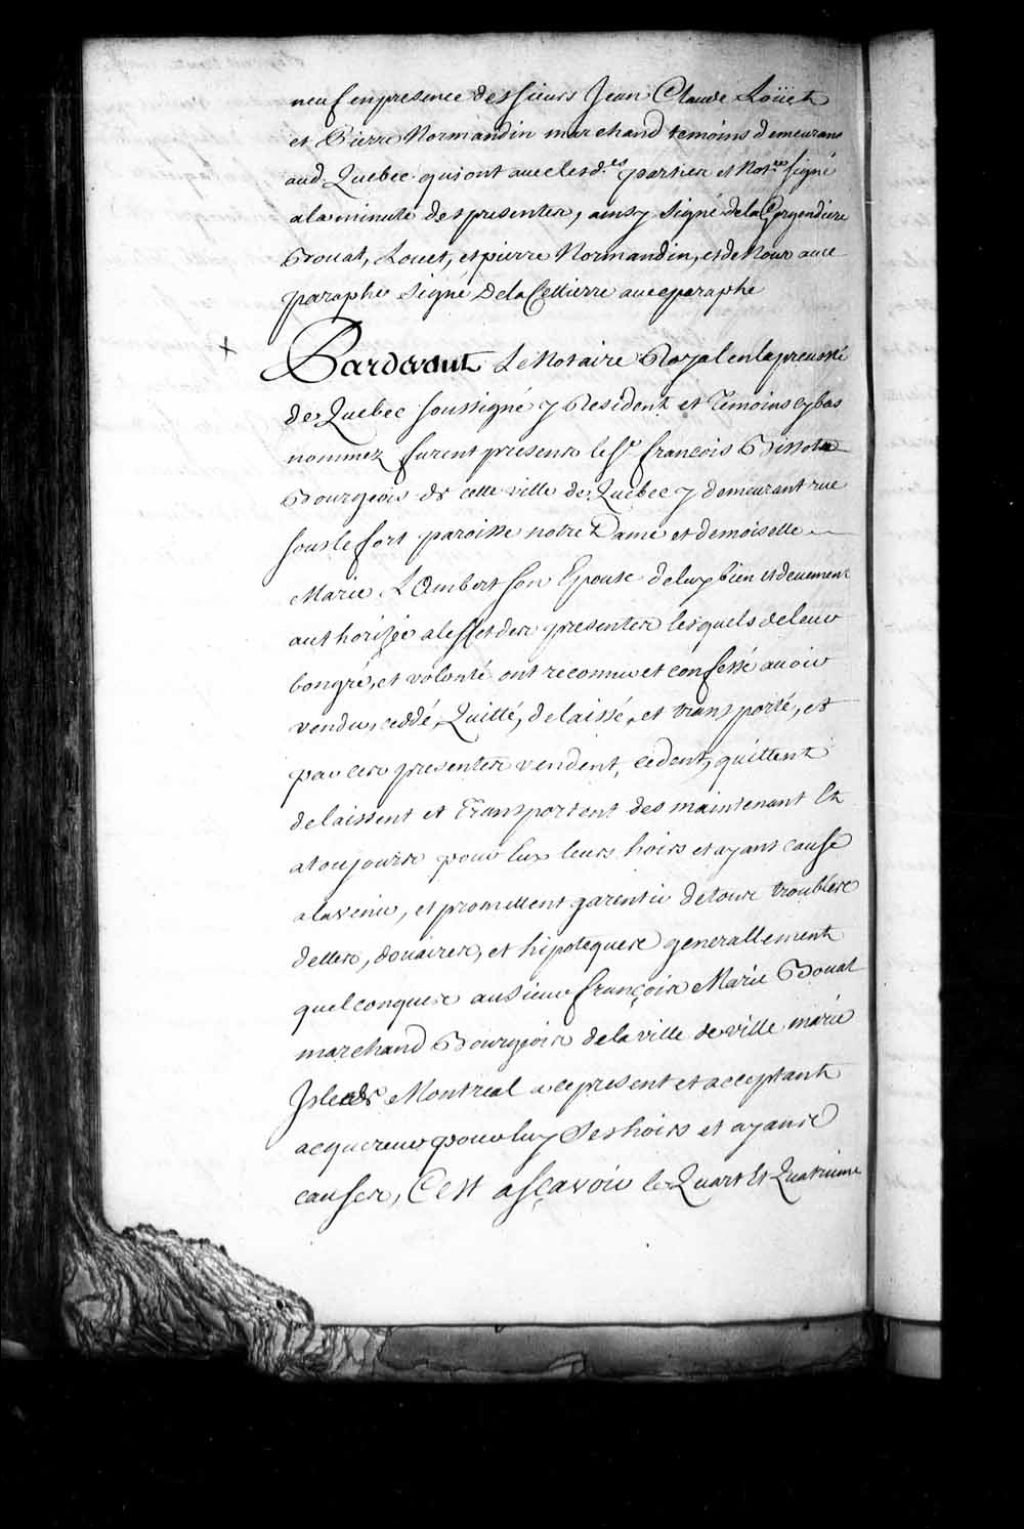 neuf en presence des sieurs Jean Claude Loüet
et Pierre Normandin marchand temoins demeurans
aud. Quebec qui ont avec lesd.es parties et Not.re signé
a la minute des presentes, ainsy signé de la Gorgendiere
Bouat, Louet, et pierre Normandin, et de Nous avec
paraphe signé DelaCettierre avec paraphe
+ Pardevant Le Notaire Royal en la prevosté
de Quebec soussigné y Resident et Temoins cy bas
nommez furent presens le Sr. francois Bissot
Bourgeois de cette ville de Quebec y demeurant rue
sous le fort paroisse notre Dame et demoiselle
Marie Lambert son Epouse de luy bien et deuement
authorisée a leffet des presentes lesquels de leur
bon gré, et volonté ont reconnu et confessé avoir
vendu, ceddé, Quitté, delaissé, et transporté, et
par ces presentes vendent, cedent, quittent
delaissent et Transportent des maintenant Et
a toujours pour Eux leurs hoirs et ayans cause
a lavenir, et promettent garentir de tous troubles
dettes, douaires, et hipoteques generallement
quelconques au sieur françois Marie Bouat
marchand Bourgeois de la ville de ville marie
Isle de Montreal a ce present et acceptant
acquereur pour luy ses hoirs et ayans
causes, C'est asçavoir le Quart Et Quatrieme